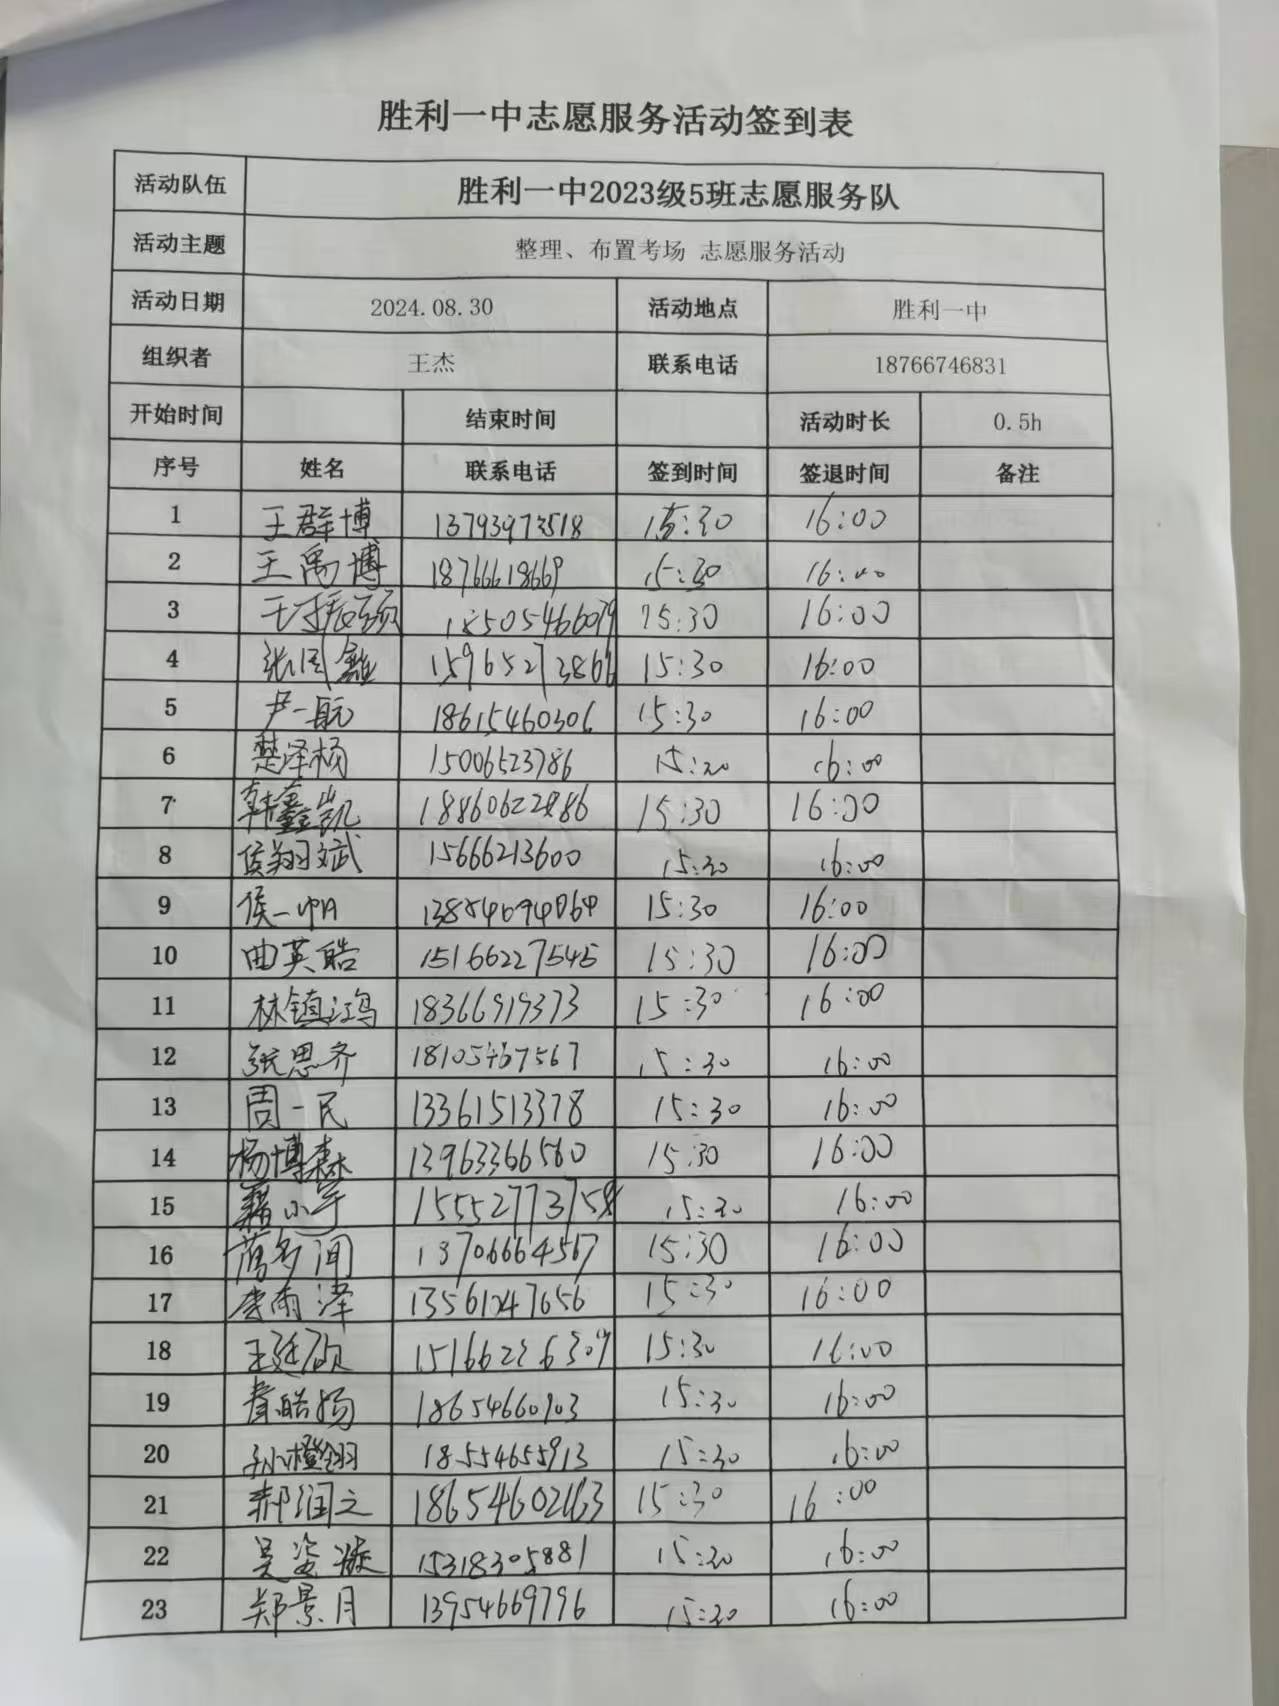 胜利一中志愿服务活动签到表
活动队伍 胜利一中2023级5班志愿服务队
活动主题 整理、布置考场 志愿服务活动
活动日期 2024.08.30 活动地点 胜利一中
组织者 王杰 联系电话 18766746831
开始时间 结束时间 活动时长 0.5h
序号 姓名 联系电话 签到时间 签退时间 备注
1 王群博 13793973518 15:30 16:00
2 王禹博 18766618669 15:30 16:00
3 15:30 16:00
4 张周鑫 15:30 16:00
5 尹一航 18615460306 15:30 16:00
6 楚泽杨 15006523786 15:30 16:00
7 韩鑫凯 18860622886 15:30 16:00
8 侯翔斌 15666213600 15:30 16:00
9 侯一帅 13854694064 15:30 16:00
10 曲英皓 15166227545 15:30 16:00
11 林镇鸿 18366919373 15:30 16:00
12 张思齐 18105467567 15:30 16:00
13 周一民 13361513378 15:30 16:00
14 杨博森 13963366580 15:30 16:00
15 15:30 16:00
16 13706664567 15:30 16:00
17 李雨泽 15:30 16:00
18 王廷硕 15:30 16:00
19 18654660903 15:30 16:00
20 孙橙翎 18554655913 15:30 16:00
21 郝润之 15:30 16:00
22 15318305881 15:30 16:00
23 郑景月 13954669796 15:30 16:00